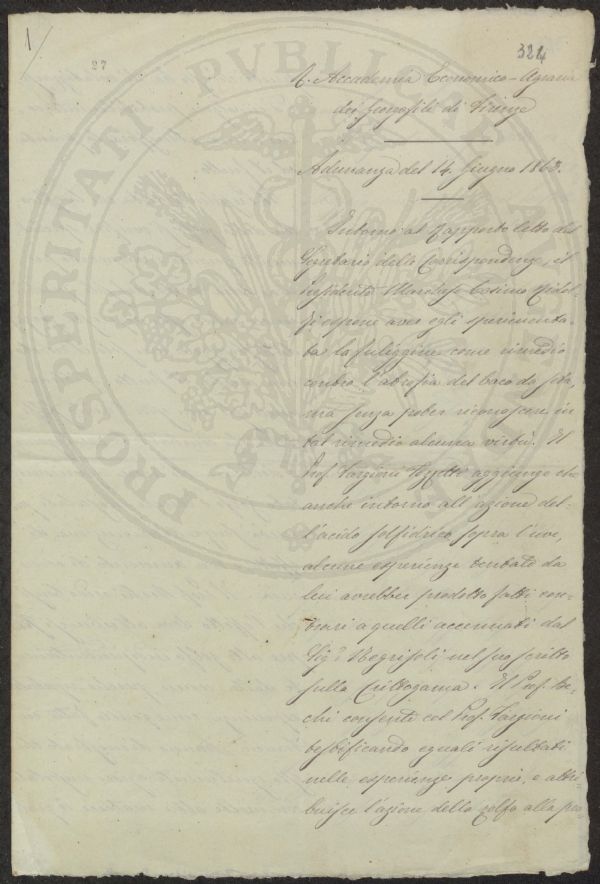 1/
27
324
R. Accademia Economico-Agraria
dei Georgofili di Firenze
Adunanza del 14. Giugno 1863.
Intorno al rapporto letto dal
Segretario delle Corrispondenze, il
Marchese Cosimo Ridol-
fi espone aver egli sperimenta-
ta la fuliggine come rimedio
contro l'atrofia del baco da seta,
ma senza poter riconoscere in
tal rimedio alcuna virtù. Il
Prof. Targioni Tozzetti aggiunge che
anche intorno all'azione del-
l'acido solfidrico sopra l'uve,
alcune esperienze tentate da
lui avrebber prodotto fatti con-
trari a quelli accennati dal
Sigr. Negrisoli nel suo scritto
sulla Crittogama. Il Prof. Be-
chi consente col Prof. Targioni
testificando eguali risultati
nelle esperienze proprie, e attri-
buisce l'azione dello zolfo alla pro-
PROSPERITATI PVBLICAE AV